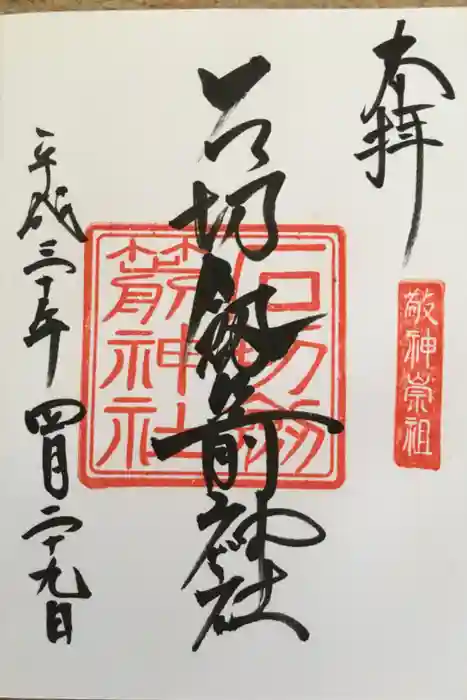 奉拝
敬神崇祖
石切劔箭神社
石切劔
箭神社
平成三十年四月二十九日